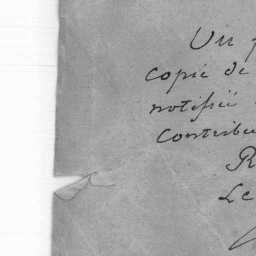 Vu p
copie de
notifiée
Contribu
R
Le